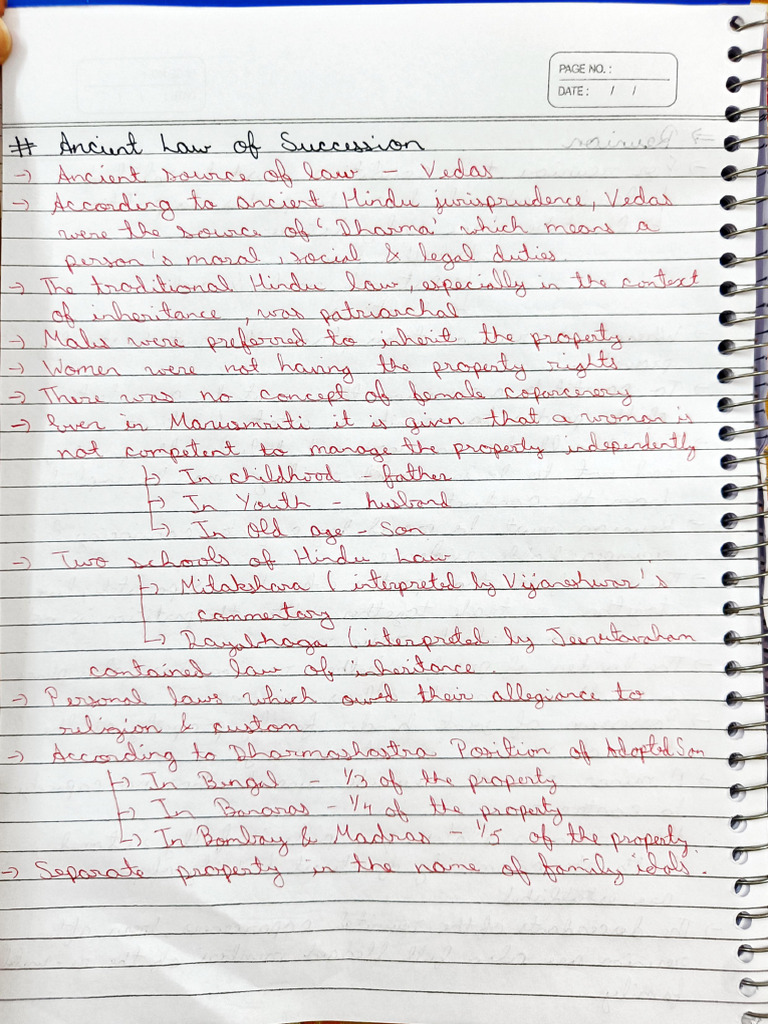 PAGE NO.:
DATE: / /
# Ancient Law of Succession
→ Ancient source of law - Vedas
→ According to ancient Hindu jurisprudence, Vedas
were the source of 'Dharma' which means a
person's moral, social & legal duties.
→ The traditional Hindu law, especially in the context
of inheritance, was patriarchal
→ Males were preferred to inherit the property
→ Women were not having the property rights
→ There was no concept of female coparcenery
→ Even in Manusmriti it is given that a woman is
not competent to manage the property independently
↳ In childhood - father
↳ In Youth - husband
↳ In Old age - Son
→ Two schools of Hindu Law
↳ Mitakshara (interpreted by Vijaneshwar's
commentary
↳ Dayabhaga (interpreted by Jeemutavaham
contained law of inheritance.
→ Personal laws which owed their allegiance to
religion & custom
→ According to Dharmashastra Position of Adopted Son
↳ In Bengal - 1/3 of the property
↳ In Banaras - 1/4 of the property
↳ In Bombay & Madras - 1/5 of the property.
→ Separate property in the name of family idols.